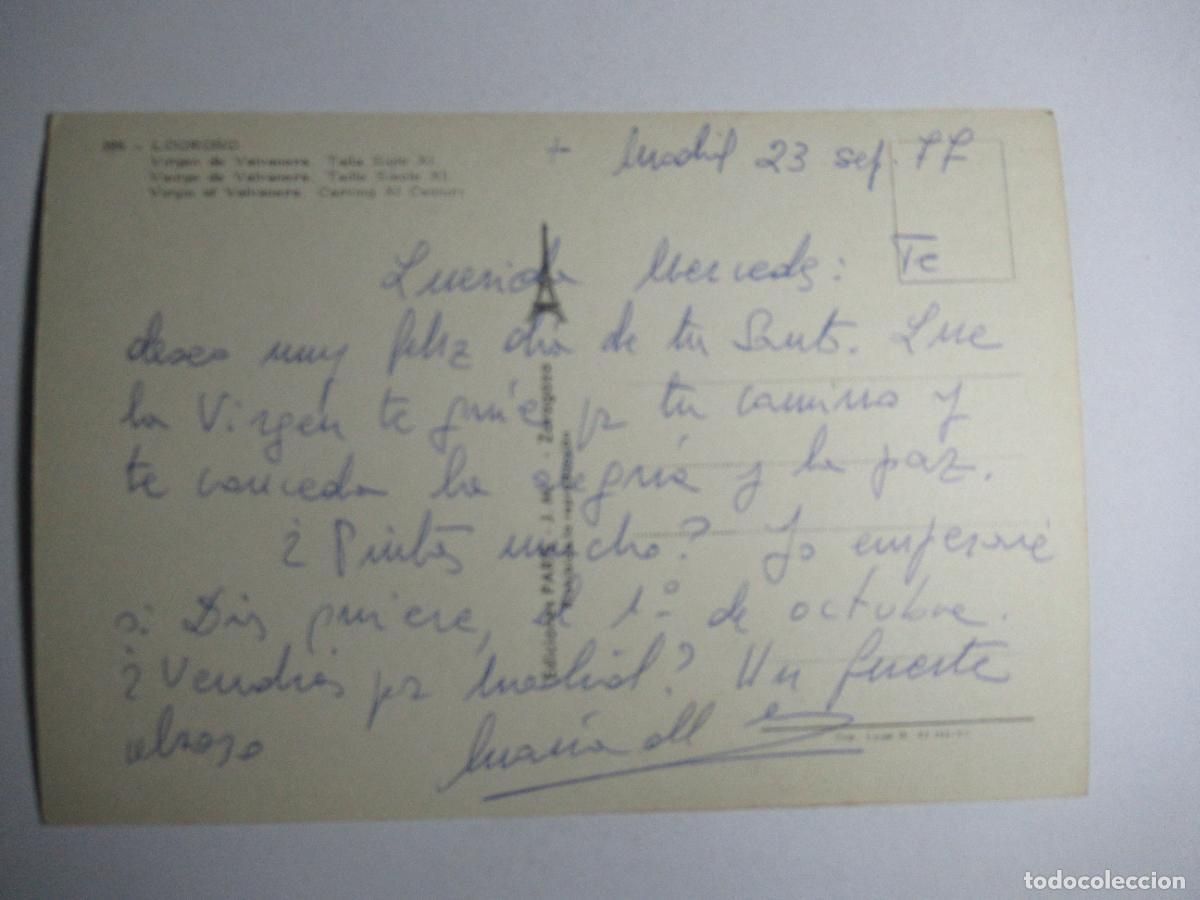 - LOGROÑO
Virgen de Valvanera. Talla Siglo XI.
Vierge de Valvanera. Taille Siècle XI.
Virgin of Valvanera. Carving XI Century
+ Madrid 23 sep. 77
Querida Mercedes: Te
deseo muy feliz día de tu Santo. Que
la Virgen te guíe por tu camino y
te conceda la alegría y la paz.
¿Pintas mucho? Yo empezaré
si Dios quiere, el 1º de octubre.
¿Vendrías por Madrid? Un fuerte
abrazo María
Ediciones PARÍS - J. M. - Zaragoza
Prohibida la reproducción
todocoleccion